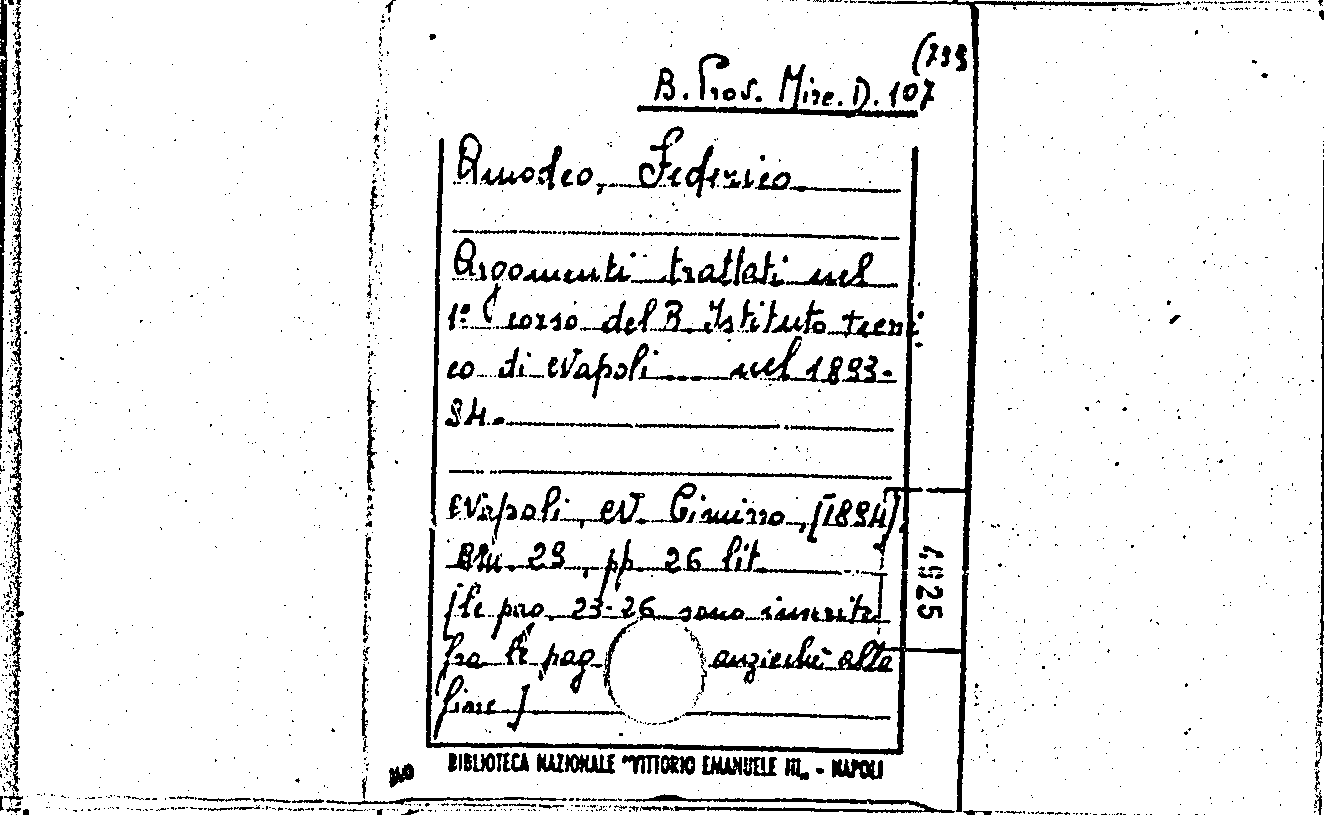 (799
B. Prov. Misc. D. 107
Amodeo, Federico.
Argomenti trattati nel
1º corso del R. Istituto tecni
co di Napoli ... nel 1893-
94.
Napoli, N. Cimirro, [1894].
cm. 29, pp. 26 lit.
[le pag. 23-26 sono inserite
fra le pag anzichè alla
fine]
4925
BIBLIOTECA NAZIONALE "VITTORIO EMANUELE III" - NAPOLI